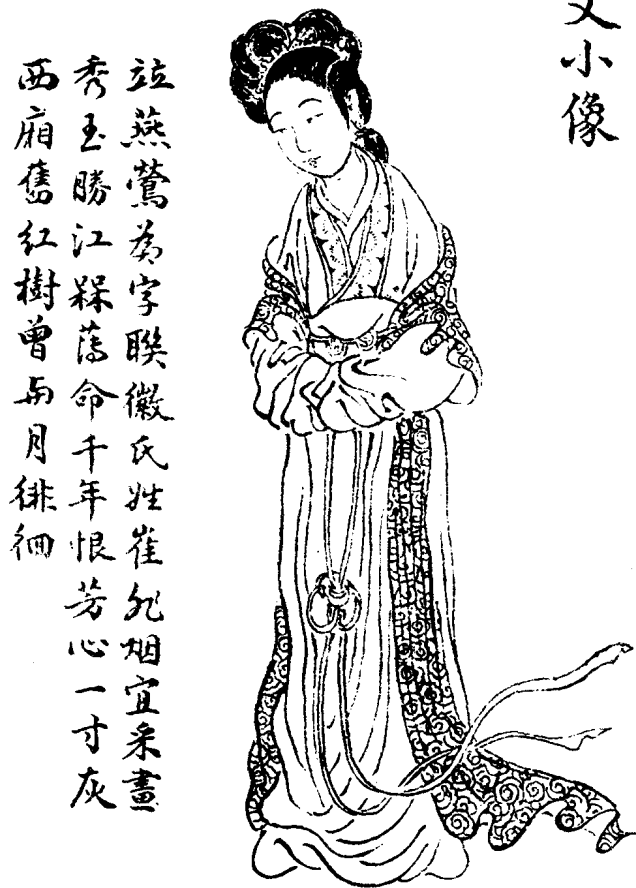 小像
竝燕鶯為字聯徽氏姓崔非烟宜采畫
秀玉勝江槑薄命千年恨芳心一寸灰
西廂舊紅樹曾与月徘徊